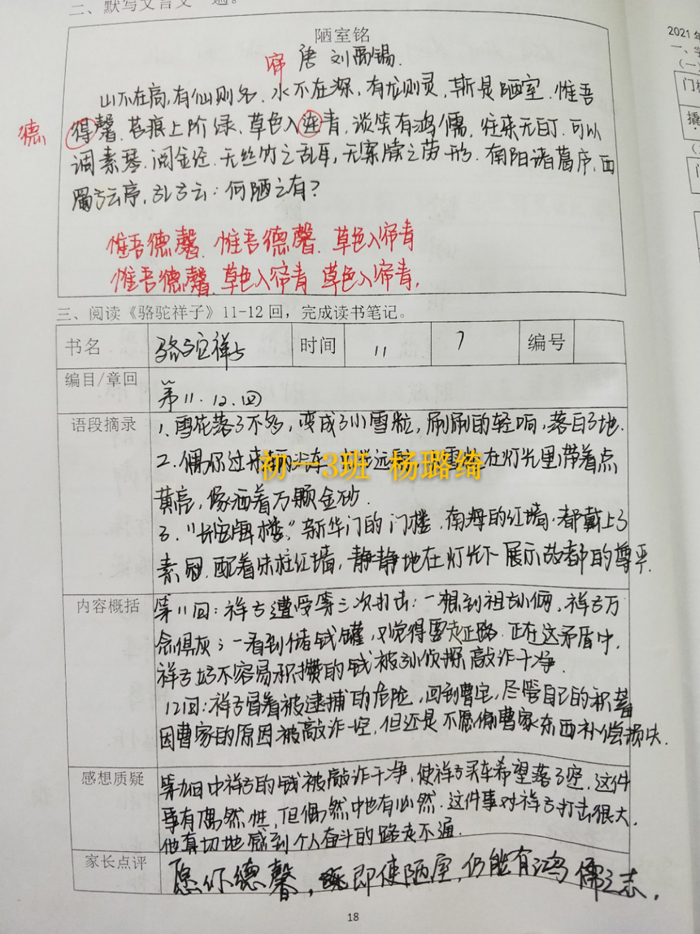 二、默写文言文一遍。
陋室铭
帘 唐 刘禹锡.
山不在高,有仙则名.水不在深,有龙则灵,斯是陋室.惟吾
德 得馨.苔痕上阶绿,草色入连青,谈笑有鸿儒,往来无白丁.可以
调素琴.阅金经.无丝竹之乱耳,无案牍之劳形.南阳诸葛庐,西
蜀子云亭,孔子云:何陋之有?
惟吾德馨.惟吾德馨.草色入帘青
惟吾德馨.草色入帘青 草色入帘青,
三、阅读《骆驼祥子》11-12回,完成读书笔记。
书名 骆驼祥子 时间 11 7 编号
编目/章回 第11.12.回
语段摘录 1.雪花落了不多,变成了小雪粒,刷刷的轻响,落白了地.
2.偶尔过来 在灯光里带着点
初一3班 杨璐绮
黄亮,像洒着万颗金砂.
3."长安牌楼."新华门的门楼.南海的红墙.都戴上了
素冠.配着朱柱红墙,静静地在灯光下展示故都的尊严.
内容概括 第11回:祥子遭受第三次打击:一想到祖孙俩,祥子万
念俱灰;一看到储钱罐,又觉得要走正路.正在这矛盾中,
祥子好不容易积攒的钱被孙侦探敲诈干净.
12回:祥子冒着被逮捕的危险,回到曹宅,尽管自己的积蓄
因曹家的原因被敲诈一空,但还是不愿偷曹家东西补偿损失.
感想质疑 中祥子的钱被敲诈干净,使祥子买车希望落了空,这件
事有偶然性,但偶然中也有必然.这件事对祥子打击很大.
他真切地感到个人奋斗的路走不通.
家长点评 愿你德馨,既即使陋室,仍能有鸿儒之志.
18
2021年
一、字
(一)
门槛
撬